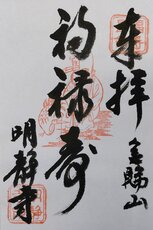 奉拝
金賜山
福禄寿
明静寺